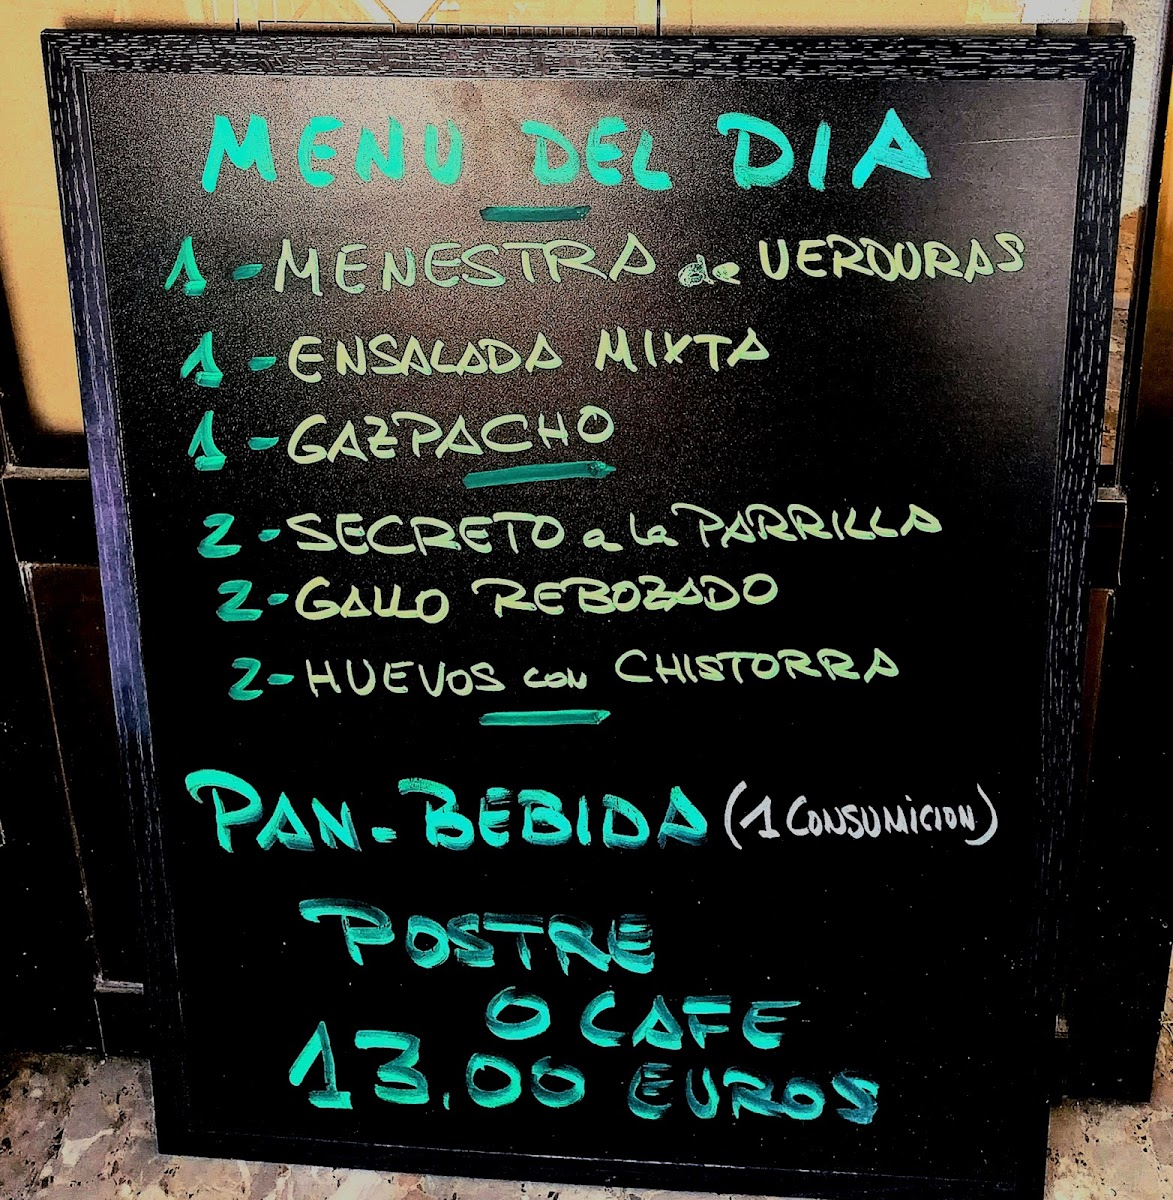 MENU DEL DIA
1 - MENESTRA de VERDURAS
1 - ENSALADA MIXTA
1 - GAZPACHO
2 - SECRETO a la PARRILLA
2 - GALLO REBOZADO
2 - HUEVOS con CHISTORRA
PAN - BEBIDA (1 CONSUMICION)
POSTRE
O CAFE
13.00 EUROS